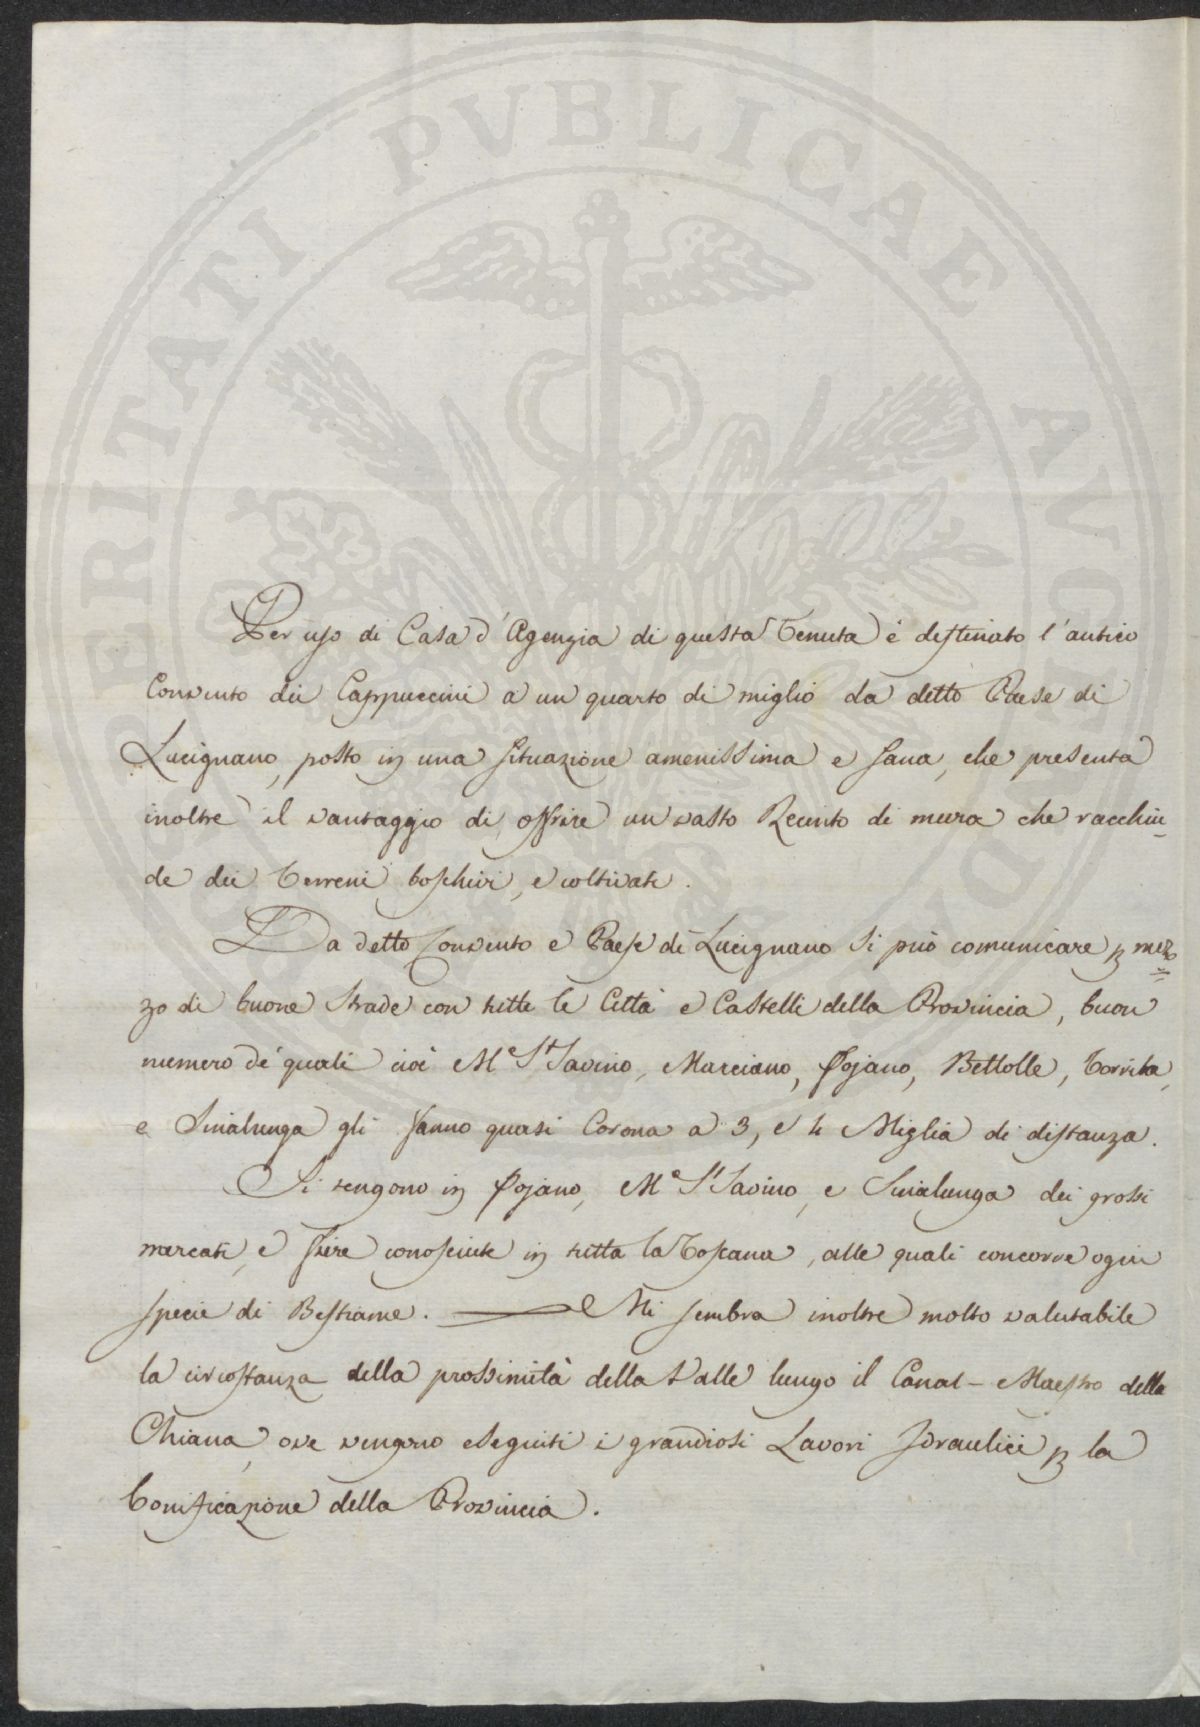 PERITATI PVBLICAE AVG
Per uso di Casa d'Agenzia di questa Tenuta è destinato l'antico
Convento dei Cappuccini a un quarto di miglio da detto Paese di
Lucignano, posto in una situazione amenissima e sana, che presenta
inoltre il vantaggio di offrire un vasto Recinto di mura che racchiu-
de dei Terreni boschivi, e coltivati.
Da detto Convento e Paese di Lucignano si può comunicare p mez=
zo di buone strade con tutte le Città e Castelli della Provincia, buon
numero de' quali cioè Me St Savino, Marciano, Fojano, Bettolle, Torrita,
e Sinalunga gli fanno quasi Corona a 3, e 4 Miglia di distanza.
Si tengono in Fojano, Me St Savino, e Sinalunga dei grossi
mercati, e fiere conosciute in tutta la Toscana, alle quali concorre ogni
specie di Bestiame. — Mi sembra inoltre molto valutabile
la circostanza della prossimità della Valle lungo il Canal-Maestro della
Chiana, ove vengono eseguiti i grandiosi Lavori Idraulici p la
bonificazione della Provincia.